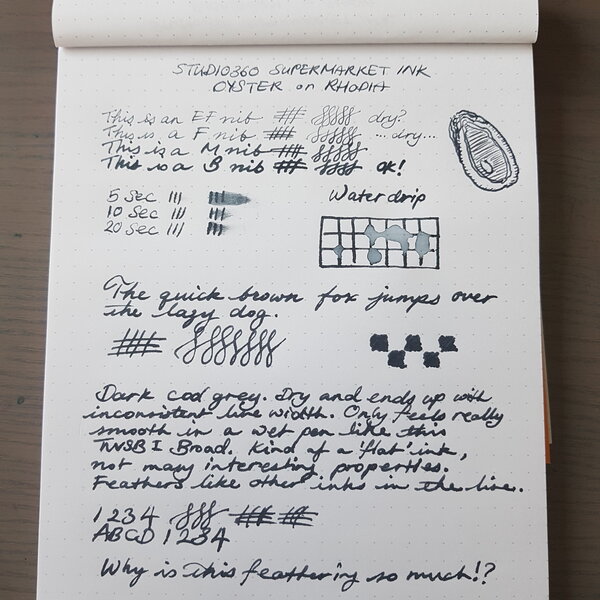 STUDIO360 SUPERMARKET INK
OYSTER on RHODIA
This is an EF nib dry?
This is a F nib ...dry...
This is a M nib
This is a B nib OK!
5 Sec
10 Sec
20 Sec
Water drip
The quick brown fox jumps over
the lazy dog.
Dark cod grey. Dry and ends up with
inconsistent line width. Only feels really
smooth in a wet pen like this
TWSBI Broad. Kind of a 'flat' ink,
not many interesting properties.
Feathers like other inks in the line.
1234
ABCD 1234
Why is this feathering so much!?